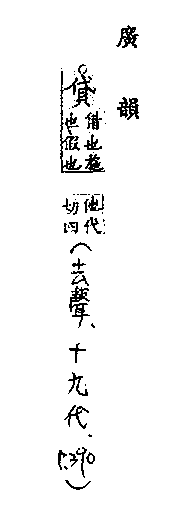 廣韻
貸借也施也假也
他代切四(去聲、十九代、P.390)